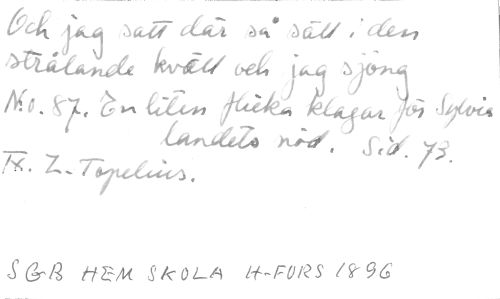 Och jag satt där så sätt i den
strålande kväll och jag sjöng
N:o. 87. En liten flicka klagar för Sylvia
landets nöd. Sid. 73.
IX. Z. Topelius.
SGB HEM SKOLA H-FORS 1896